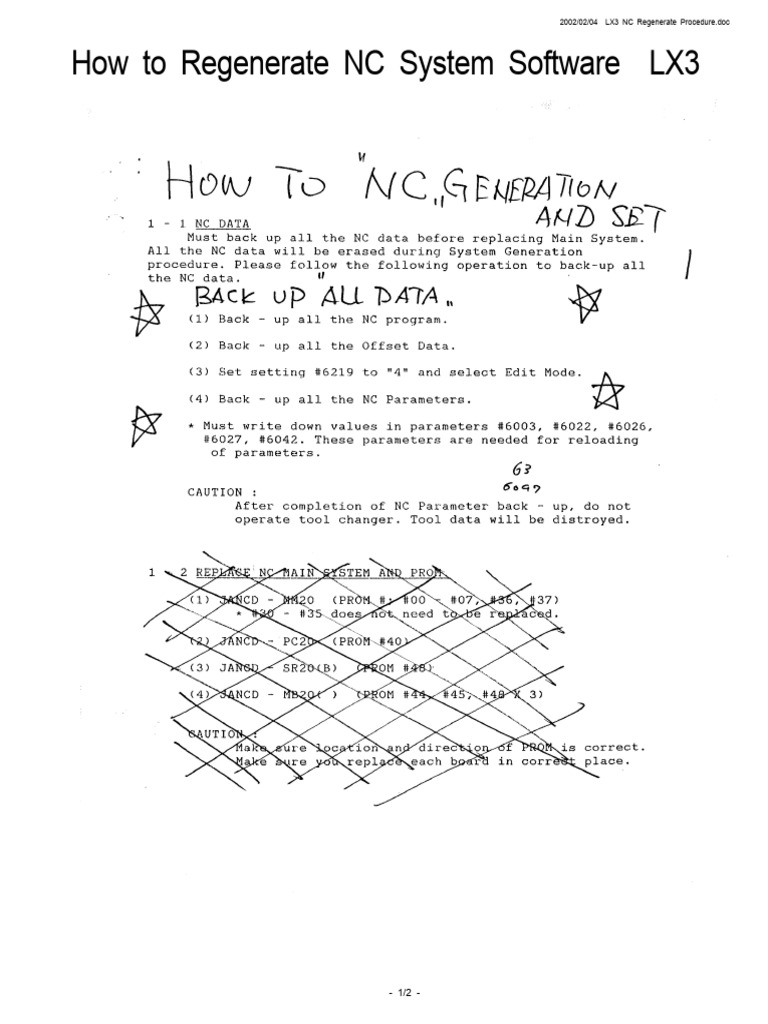 2002/02/04 LX3 NC Regenerate Procedure.doc
How to Regenerate NC System Software LX3
HOW TO "NC„ GENERATION
AND SET
1 - 1 NC DATA
Must back up all the NC data before replacing Main System.
All the NC data will be erased during System Generation
procedure. Please follow the following operation to back-up all
the NC data.
1
"BACK UP ALL DATA„
(1) Back - up all the NC program.
(2) Back - up all the Offset Data.
(3) Set setting #6219 to "4" and select Edit Mode.
(4) Back - up all the NC Parameters.
* Must write down values in parameters #6003, #6022, #6026,
#6027, #6042. These parameters are needed for reloading
of parameters.
63
6097
CAUTION :
After completion of NC Parameter back - up, do not
operate tool changer. Tool data will be distroyed.
1 - 2 REPLACE NC MAIN SYSTEM AND PROM
(1) JANCD - MM20 (PROM #: #00 - #07, #36, #37)
* #30 - #35 does not need to be replaced.
(2) JANCD - PC20 (PROM #40)
(3) JANCD - SR20(B) (PROM #48)
(4) JANCD - MB20( ) (PROM #44, #45, #48 X 3)
CAUTION :
Make sure location and direction of PROM is correct.
Make sure you replace each board in correct place.
- 1/2 -